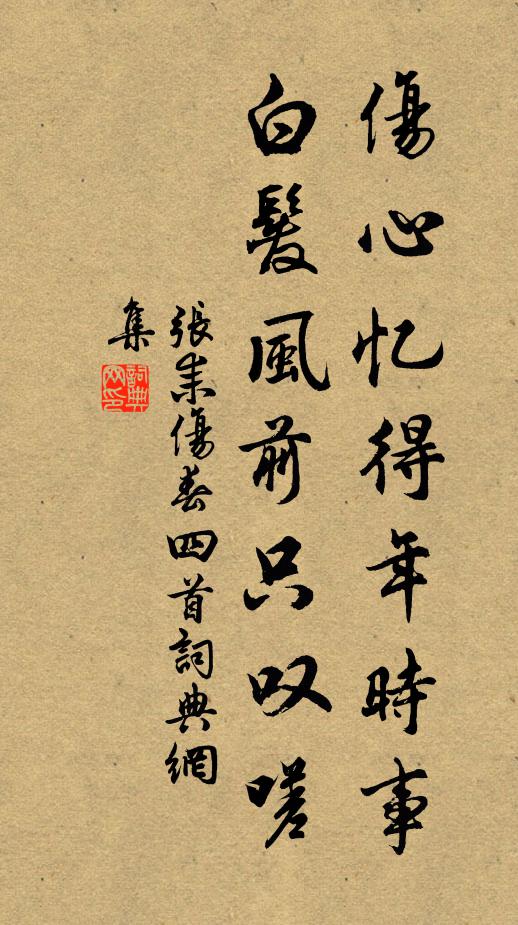 傷心忆得年時事
白髮風前只叹嗟
張耒傷春四首詞典網
集
詞典网印